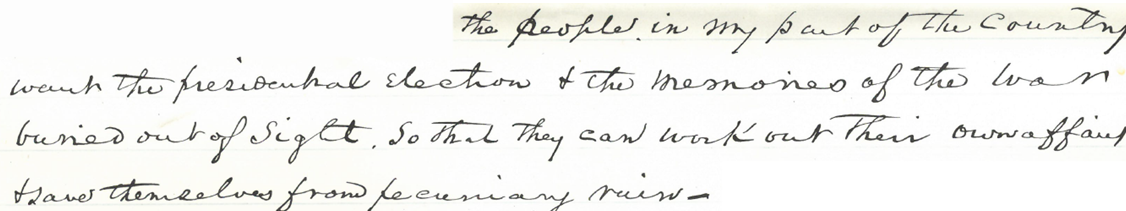 the people in my part of the Country
want the presidential Election & the Memories of the War
buried out of Sight. So that they can work out Their own affairs
& save themselves from pecuniary ruin –